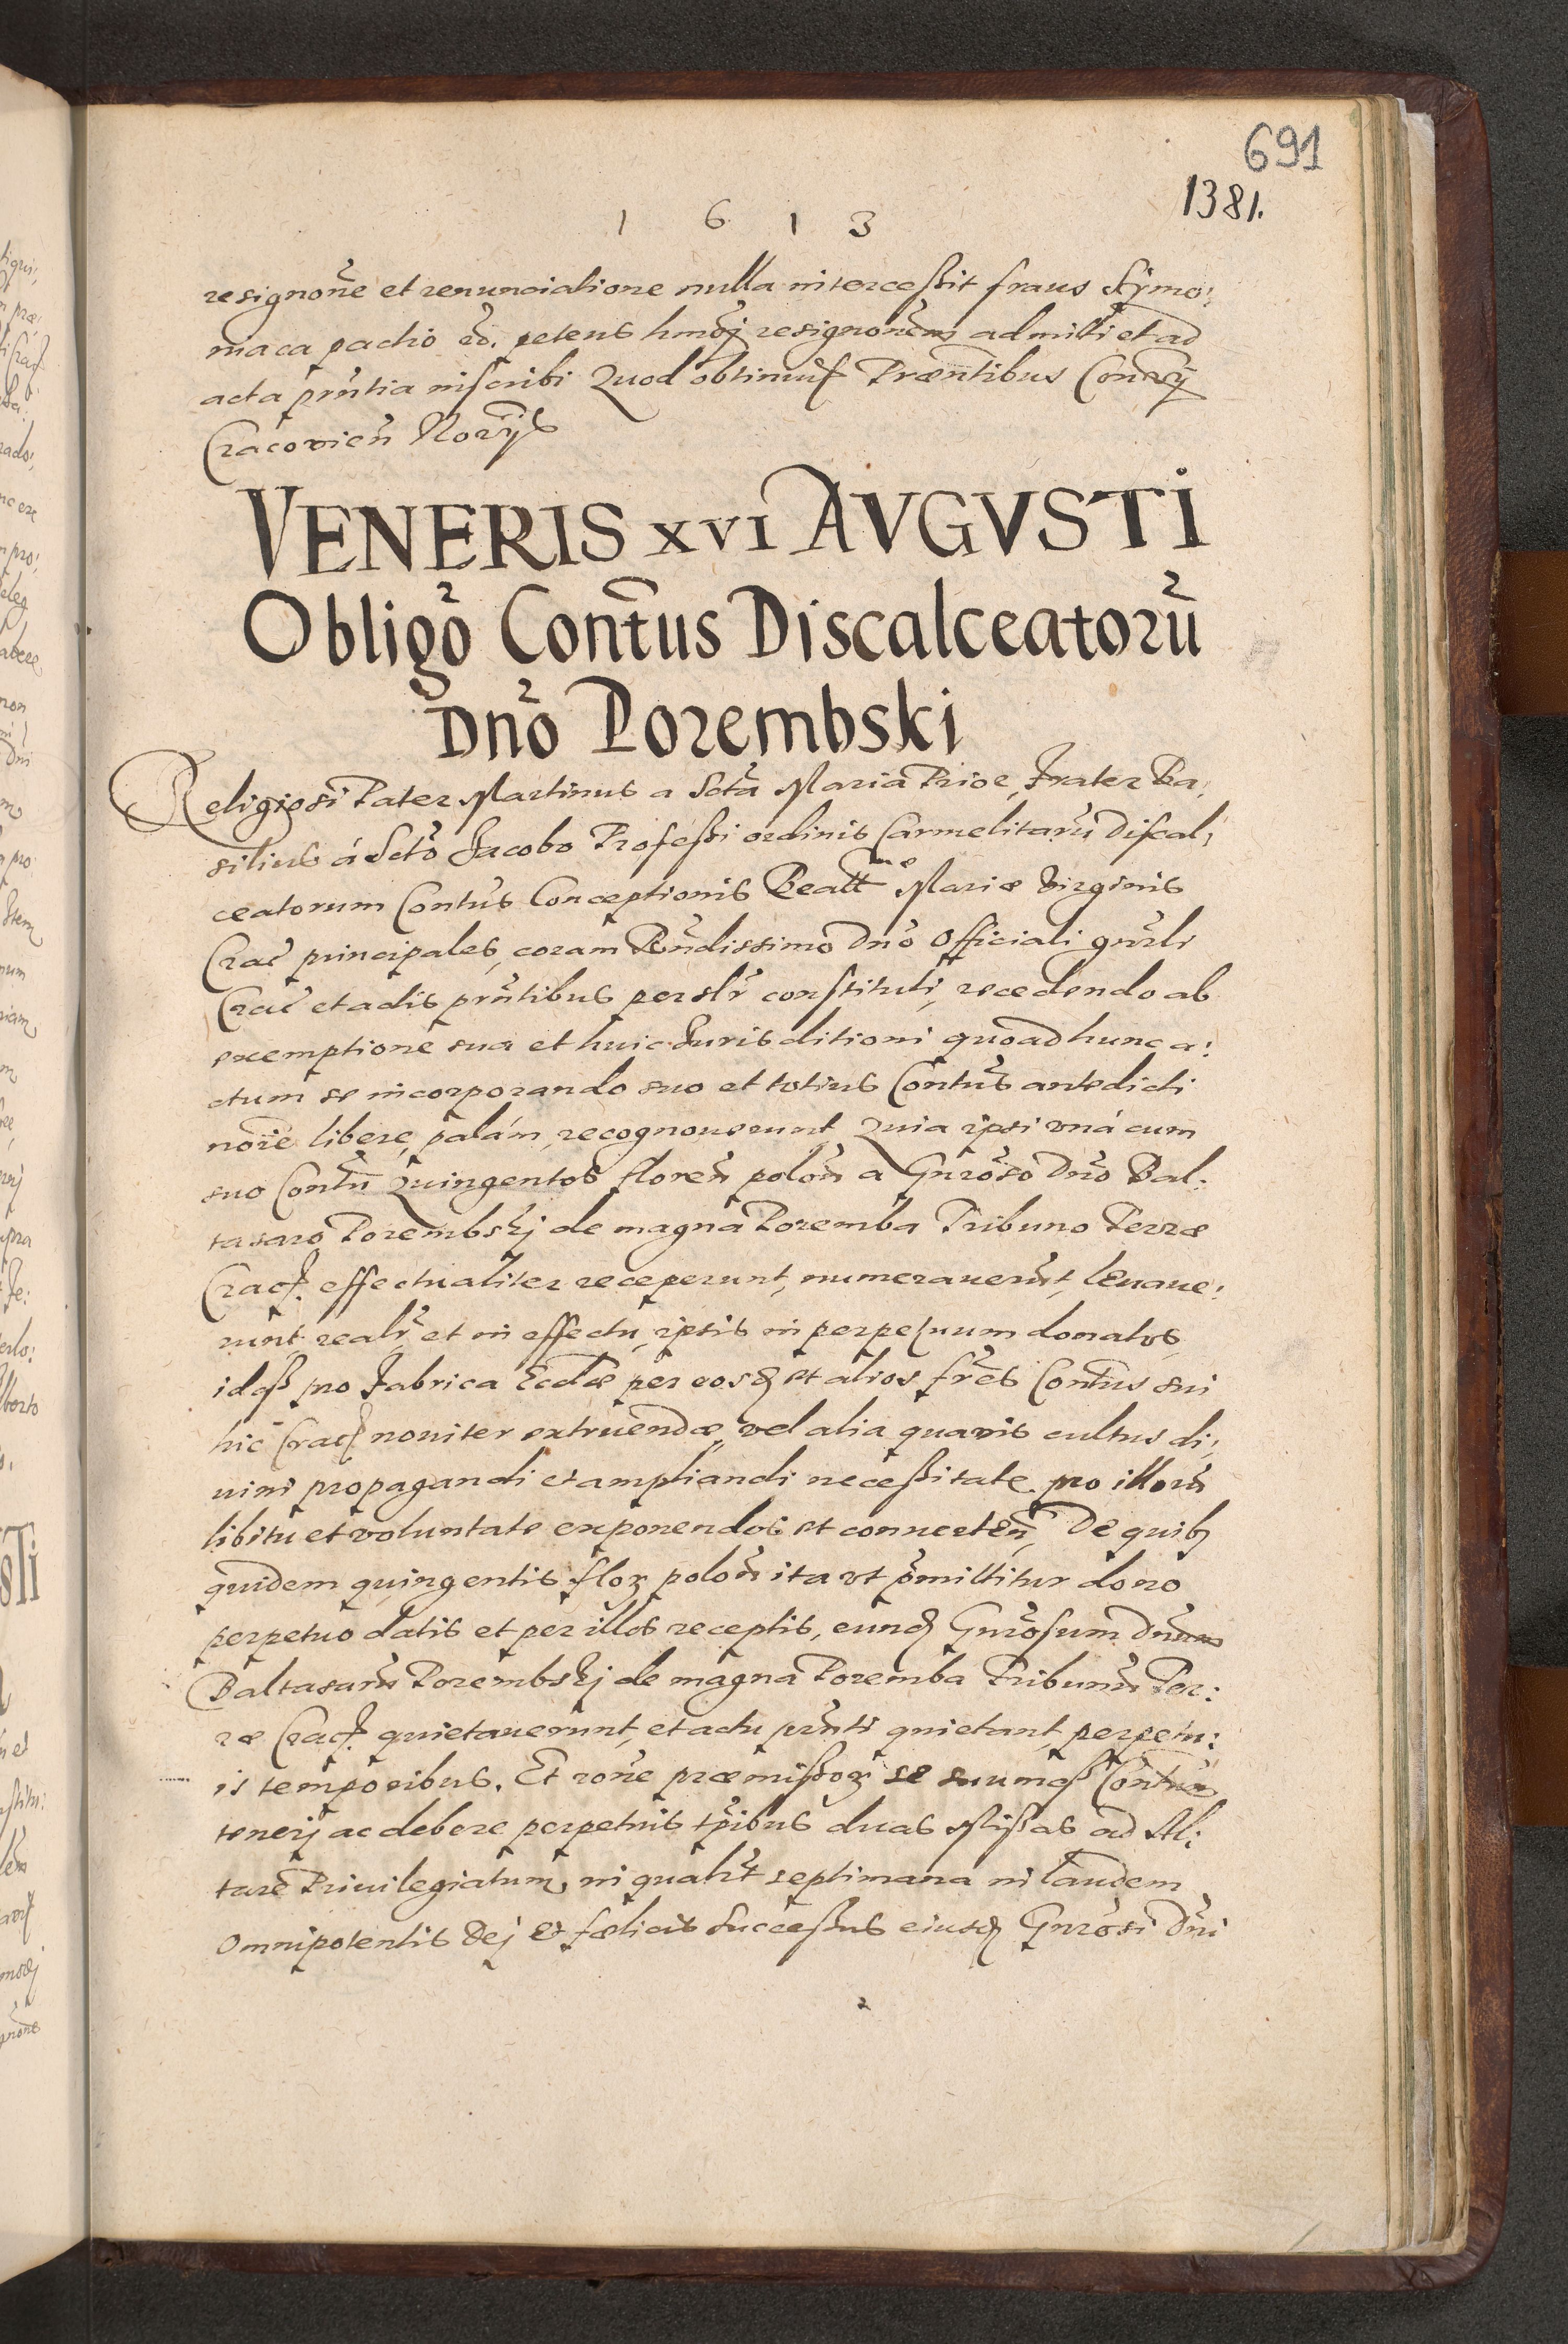 691
1381.
1 6 1 3
resignoñe et renunciatione nulla intercessit fraus Sÿmo:
niaca pactio &c. petens hmõj resignonem admitti et ad
acta pñtia inscribi Quod obtinuit Præsentibus Conrÿ
Cracovien Norÿs
VENERIS XVI AVGVSTI
Obligõ Contus Discalceatorũ
Dnõ Porembski
Religiosi Pater Martinus a Scta Maria Prior, Frater Ba:
silius á Scto Jacobo Professi ordinis Carmelitarũ Discal:
ceatorum Contus Conceptionis Beattmæ Mariæ Virginis
Crac principales, coram Rndissimo Dnõ Officiali gnrli
Crac et actis pñtibus persolr constituti, recedendo ab
exemptione sua et huic Jurisditioni quoad hunc a:
ctum se incorporando suo et totius Contus antedicti
noie libere, palám, recognouerunt Quia ipsi vná cum
suo Contu Quingentos floren polon a Gnroso Dno Bal:
tasaro Porembskj de magna Poremba Tribuno Terræ
Crac. effectualiter receperunt, numerauerut, leuaue:
runt realr et in effectu, ipsis in perpetuum donatos
idq3 pro Fabrica Ecclæ per eosd et alios fres Contus sui
hic Crac nouiter extruendæ, vel alia quavis cultus di:
uini propagandi et ampliandi necessitate pro illorũ
libitu et voluntate exponendos et conuerten, De quib3
quidem quingentis flor polon ita vt pmittitur dono
perpetuo datis et per illos receptis, eund Gnrosum Dnum
Baltasarũ Porembskj de magna Poremba Tribunũ Ter:
ræ Crac. quietauerunt, et actu pnti quietant, perpetu:
is temporibus. Et rone præmissor se suumq3 Contum
tenerj ac debere perpetuis tpibus duas Missas ad Al:
tare Priuilegiatum, in qualt septimana in laudem
Omnipotentis Dej et fælicis Successus eiusd Gnrosi Dni